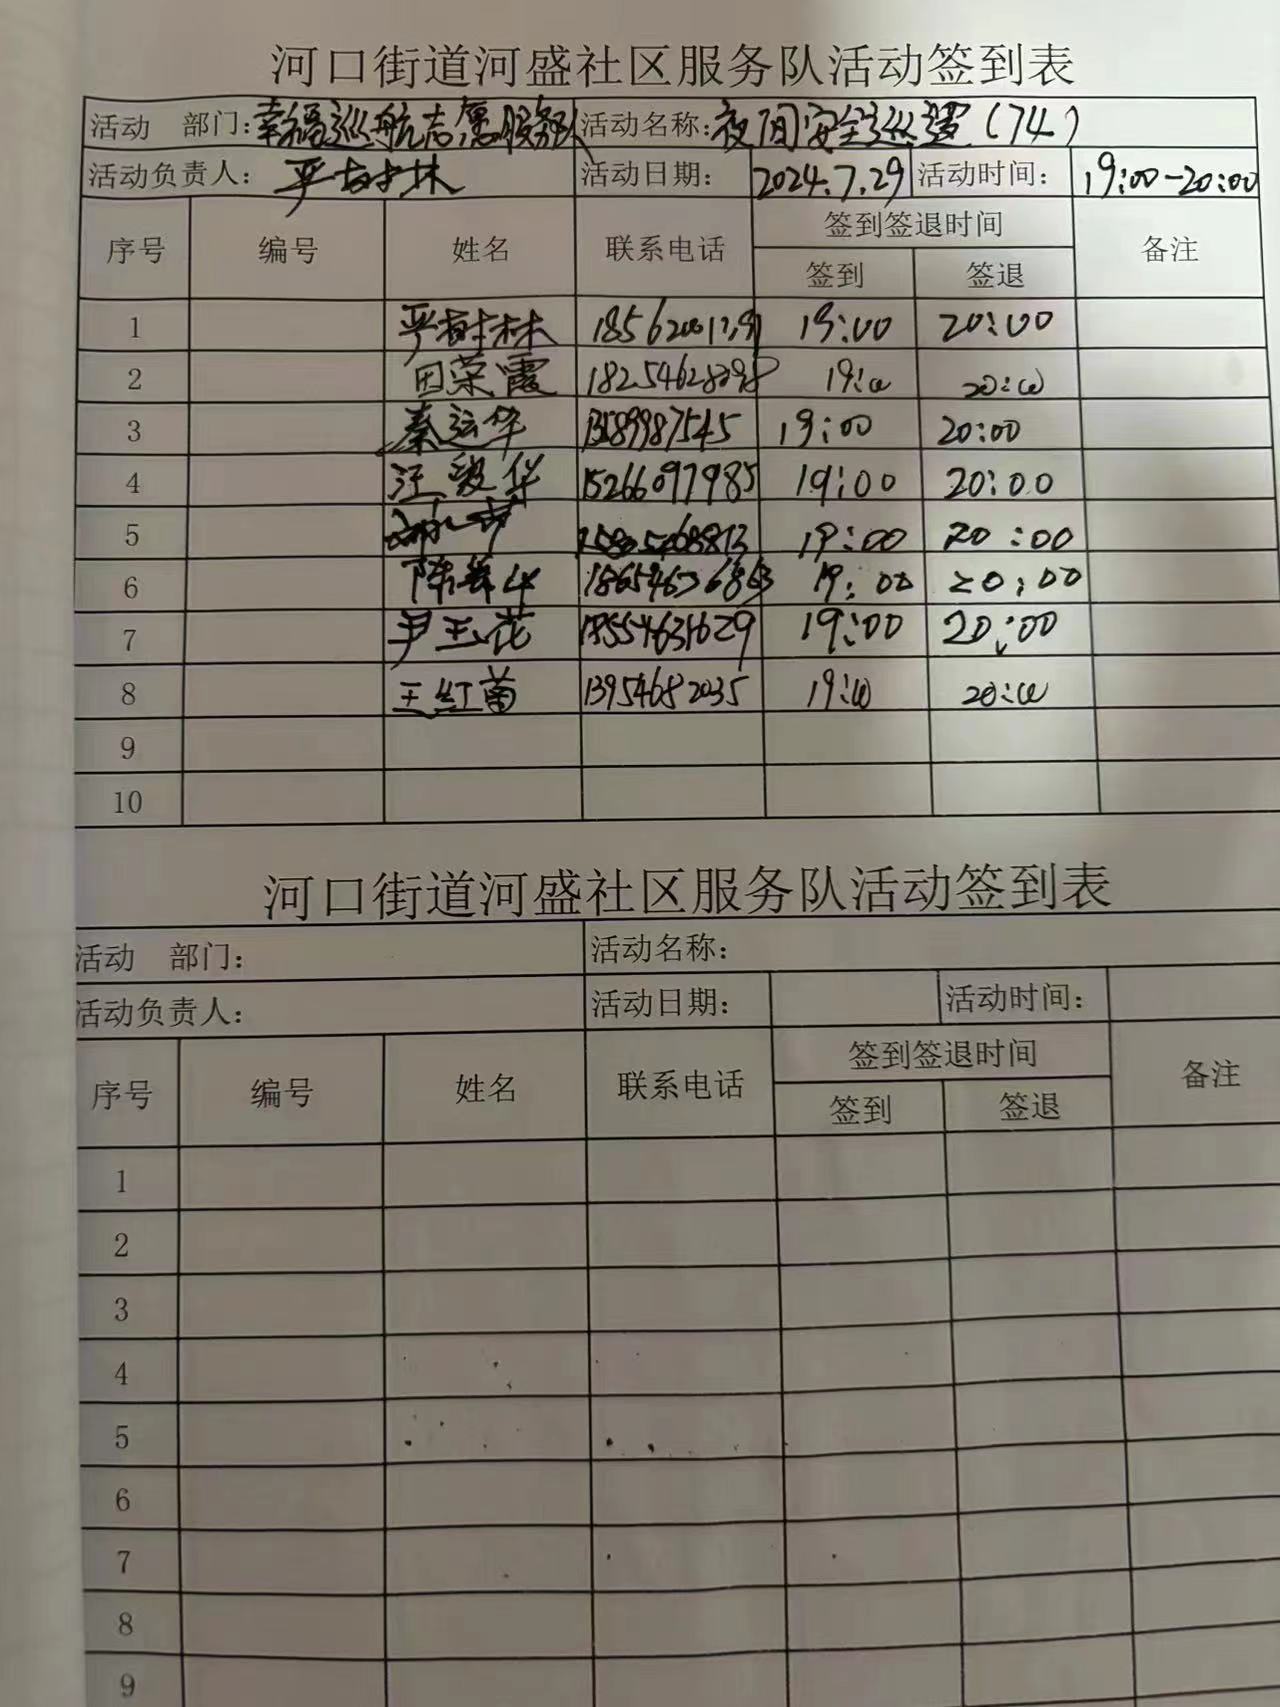 河口街道河盛社区服务队活动签到表
活动 部门:幸福巡航志愿服务队 活动名称:夜间安全巡逻(74)
活动负责人: 严树林 活动日期: 2024.7.29 活动时间: 19:00-20:00
序号 编号 姓名 联系电话 签到签退时间 备注
签到 签退
1 严树林 19:00 20:00
2 田荣霞 19:00 20:00
3 秦运华 13589987545 19:00 20:00
4 汪毅华 15266097985 19:00 20:00
5 19:00 20:00
6 19:00 20:00
7 尹玉花 19:00 20:00
8 王红菌 13954682035 19:00 20:00
9
10
河口街道河盛社区服务队活动签到表
活动 部门: 活动名称:
活动负责人: 活动日期: 活动时间:
序号 编号 姓名 联系电话 签到签退时间 备注
签到 签退
1
2
3
4
5
6
7
8
9